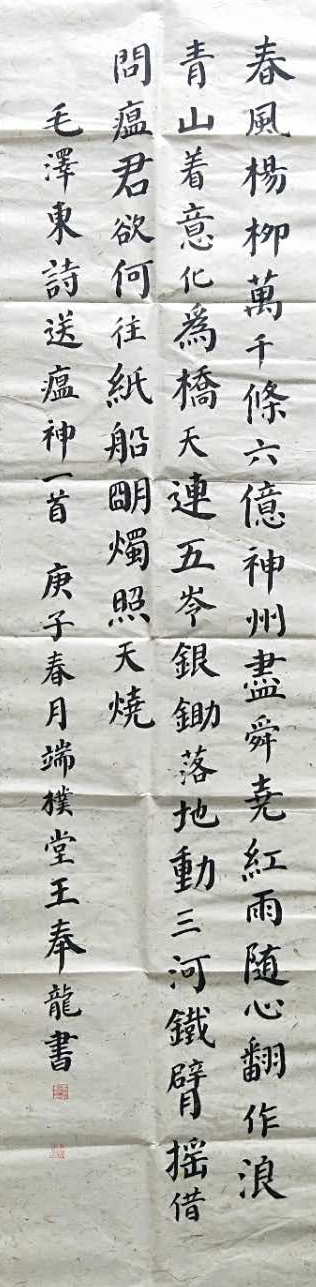 春風楊柳萬千條六億神州盡舜堯紅雨随心翻作浪
青山着意化為橋天連五岺銀鋤落地動三河鐵臂摇借
問瘟君欲何往紙船朙燭照天燒
毛澤東詩送瘟神一首 庚子春月端樸堂王奉龍書